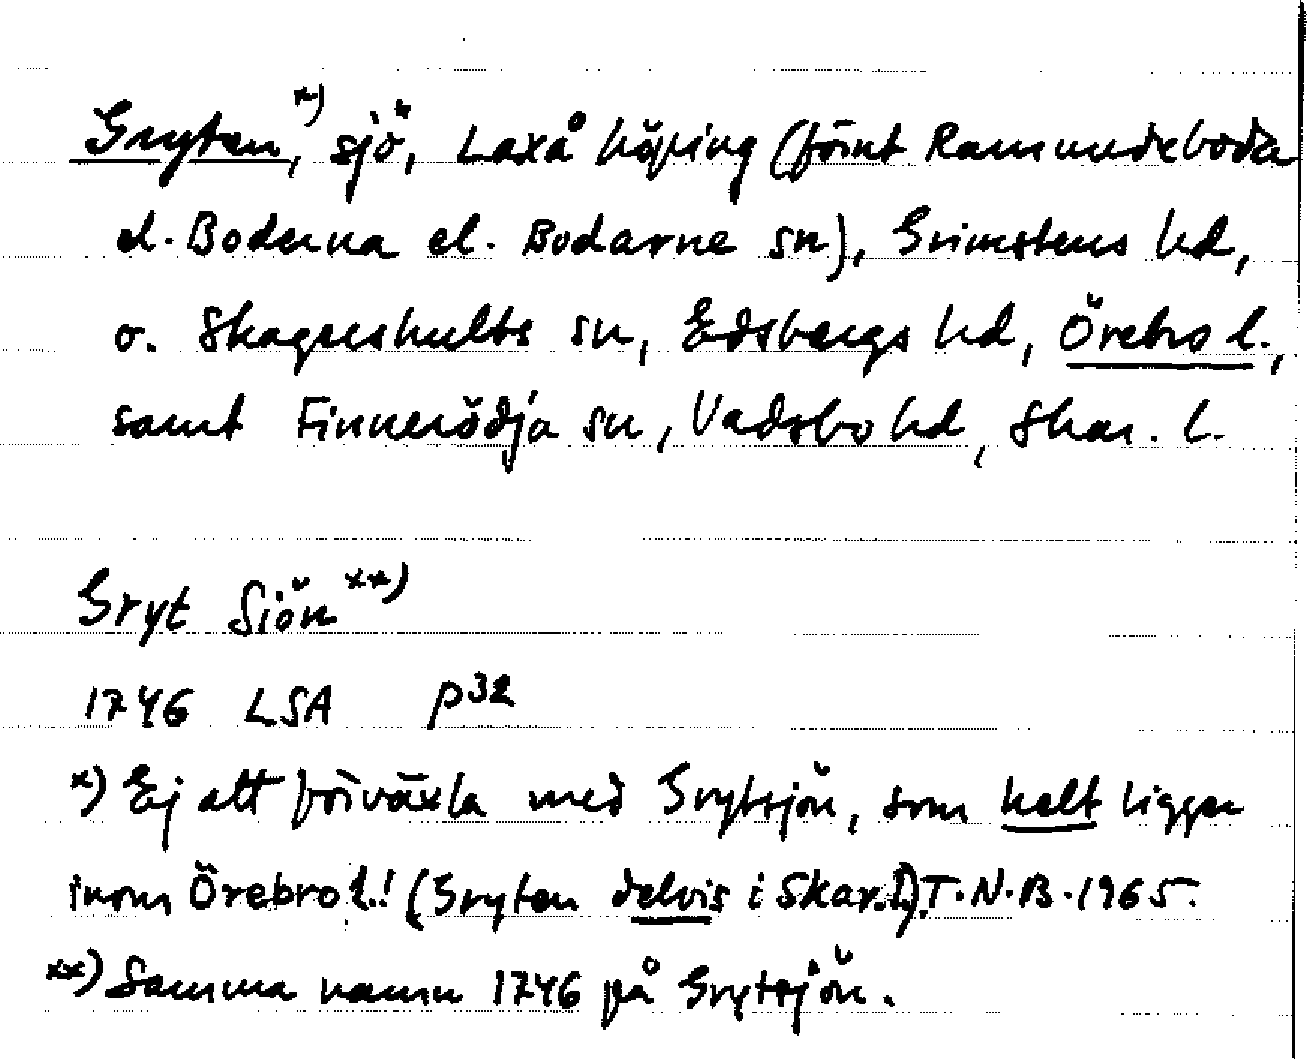 Gryten, x) sjö, Laxå köping (förut Ramundeboda
el. Boderna el. Bodarne sn), Grimstens hd,
o. Skagershults sn, Edsbergs hd, Örebro l.,
samt Finnerödja sn, Vadsbo hd, Skar. l.
Gryt Siön xx)
1746 LSA p32
x) Ej att förväxla med Grytsjön, som helt ligger
inom Örebro l.! (Gryten delvis i Skar.l.) T.N.B. 1965.
xx) Samma namn 1746 på Grytsjön.